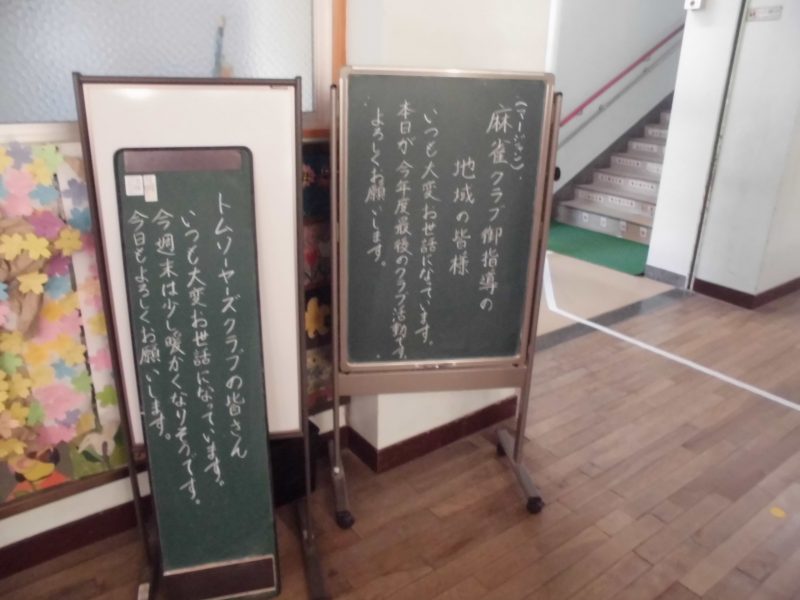 (マージャン)
麻雀クラブ御指導の
地域の皆様
いつも大変お世話になっています。
本日が今年度最後のクラブ活動です。
よろしくお願いします。
トムソーヤーズクラブの皆さん
いつも大変お世話になっています。
今週末は少し暖かくなりそうです。
今日もよろしくお願いします。